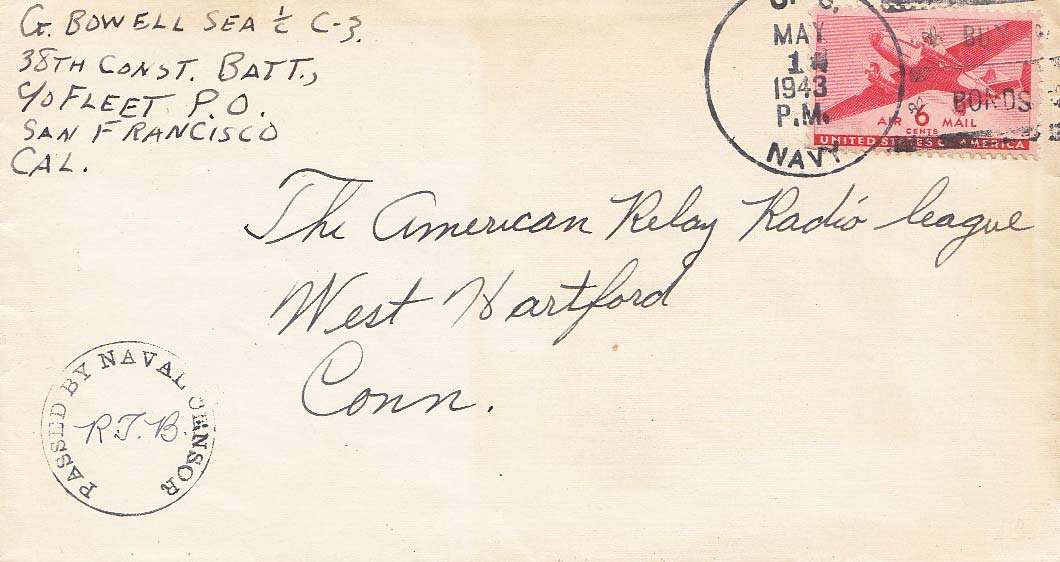 G. BOWELL SEA ½ C-3.
38TH CONST. BATT.,
C/O FLEET P.O.
SAN FRANCISCO
CAL.
MAY
1
1943
P.M.
NAVY
BUY
BONDS
AIR 6 MAIL
CENTS
UNITED STATES OF AMERICA
The American Relay Radio league
West Hartford
Conn.
PASSED BY NAVAL CENSOR
R.T.B.